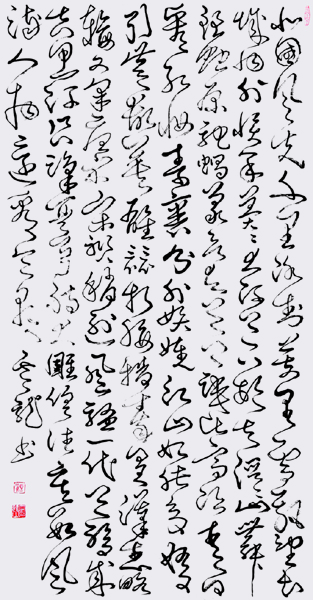 北國風光千里冰封萬里雪飄望長
城內外惟餘莽莽大河上下頓失滔滔山舞
銀蛇原馳蠟象欲與天公試比高須晴日
看紅妝素裹分外妖嬈江山如此多嬌
引無數英雄競折腰惜秦皇漢武略
輸文采唐宗宋祖稍遜風騷一代天驕成
吉思汗只識彎弓射大雕俱往矣數風
流人物還看今朝
龍書